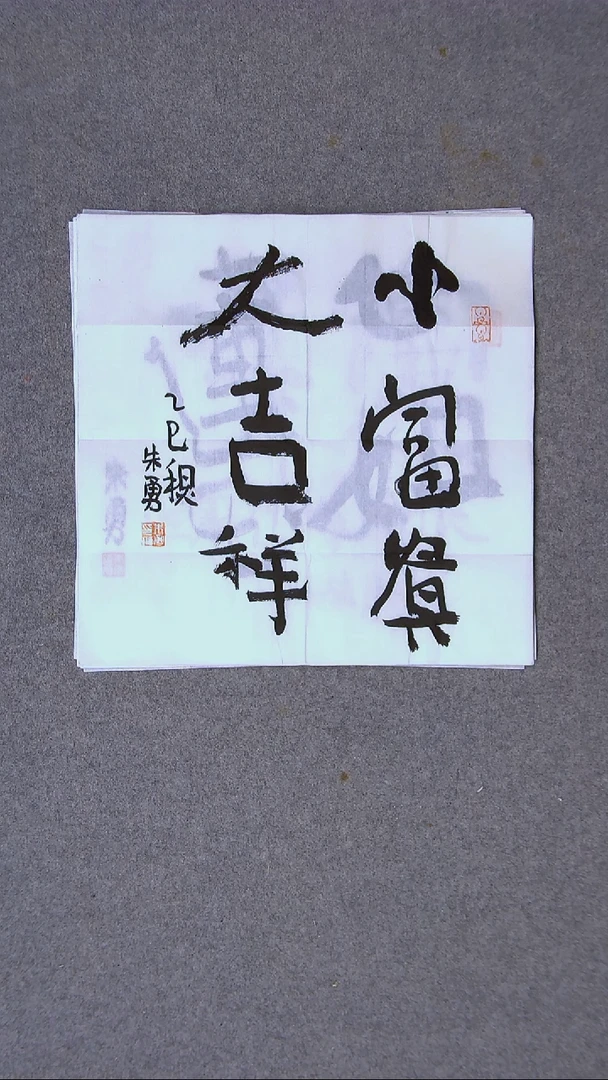 小富貴
大吉祥
乙巳
朱勇